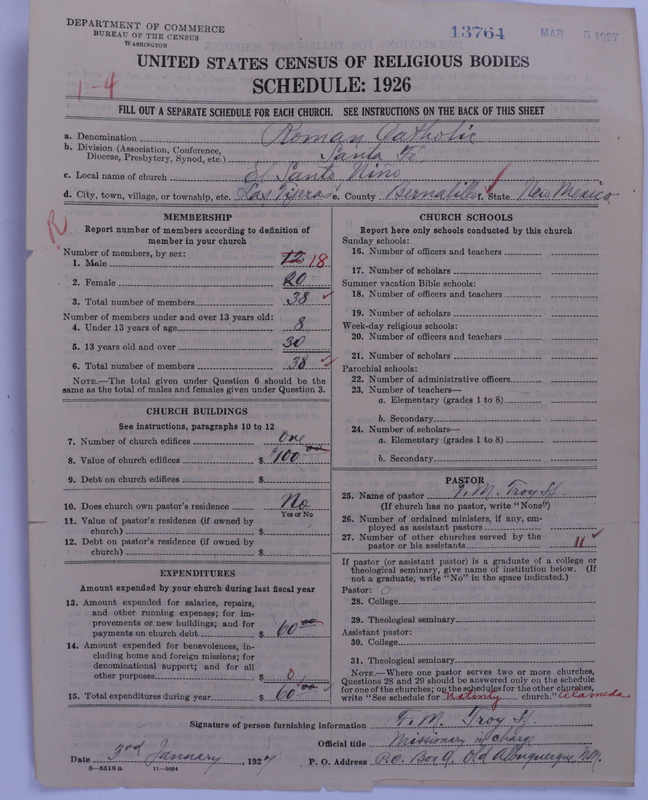 DEPARTMENT OF COMMERCE
BUREAU OF THE CENSUS
WASHINGTON
13764
MAR 5 1927
UNITED STATES CENSUS OF RELIGIOUS BODIES
SCHEDULE: 1926
1-4
FILL OUT A SEPARATE SCHEDULE FOR EACH CHURCH. SEE INSTRUCTIONS ON THE BACK OF THIS SHEET
a. Denomination Roman Catholic
b. Division (Association, Conference, Diocese, Presbytery, Synod, etc.) Santa Fe
c. Local name of church El Santo Nino
d. City, town, village, or township, etc. Las e. County Bernalillo f. State New Mexico
R
MEMBERSHIP
Report number of members according to definition of
member in your church
Number of members, by sex:
1. Male 12 18
2. Female 20
3. Total number of members 38
Number of members under and over 13 years old:
4. Under 13 years of age 8
5. 13 years old and over 30
6. Total number of members 38
NOTE.—The total given under Question 6 should be the
same as the total of males and females given under Question 3.
CHURCH BUILDINGS
See instructions, paragraphs 10 to 12
7. Number of church edifices One
8. Value of church edifices $ 100 00
9. Debt on church edifices $
10. Does church own pastor's residence No
Yes or No
11. Value of pastor's residence (if owned by
church) $
12. Debt on pastor's residence (if owned by
church) $
EXPENDITURES
Amount expended by your church during last fiscal year
13. Amount expended for salaries, repairs,
and other running expenses; for im-
provements or new buildings; and for
payments on church debt $ 60 00
14. Amount expended for benevolences, in-
cluding home and foreign missions; for
denominational support; and for all
other purposes $ 0
15. Total expenditures during year $ 60 00
CHURCH SCHOOLS
Report here only schools conducted by this church
Sunday schools:
16. Number of officers and teachers
17. Number of scholars
Summer vacation Bible schools:
18. Number of officers and teachers
19. Number of scholars
Week-day religious schools:
20. Number of officers and teachers
21. Number of scholars
Parochial schools:
22. Number of administrative officers
23. Number of teachers—
a. Elementary (grades 1 to 8)
b. Secondary
24. Number of scholars—
a. Elementary (grades 1 to 8)
b. Secondary
PASTOR
25. Name of pastor M. Troy SJ.
(If church has no pastor, write "None")
26. Number of ordained ministers, if any, em-
ployed as assistant pastors
27. Number of other churches served by the
pastor or his assistants 11
If pastor (or assistant pastor) is a graduate of a college or
theological seminary, give name of institution below. (If
not a graduate, write "No" in the space indicated.)
Pastor:
28. College
29. Theological seminary
Assistant pastor:
30. College
31. Theological seminary
NOTE.—Where one pastor serves two or more churches,
Questions 28 and 29 should be answered only on the schedule
for one of the churches; on the schedules for the other churches,
write "See schedule for Nativity church." Alameda
Signature of person furnishing information M. Troy SJ.
Official title Missionary in charge
Date 3rd January, 1927 P. O. Address P.O. Box 9. Old Albuquerque N.M.
8-5518a 11-9064